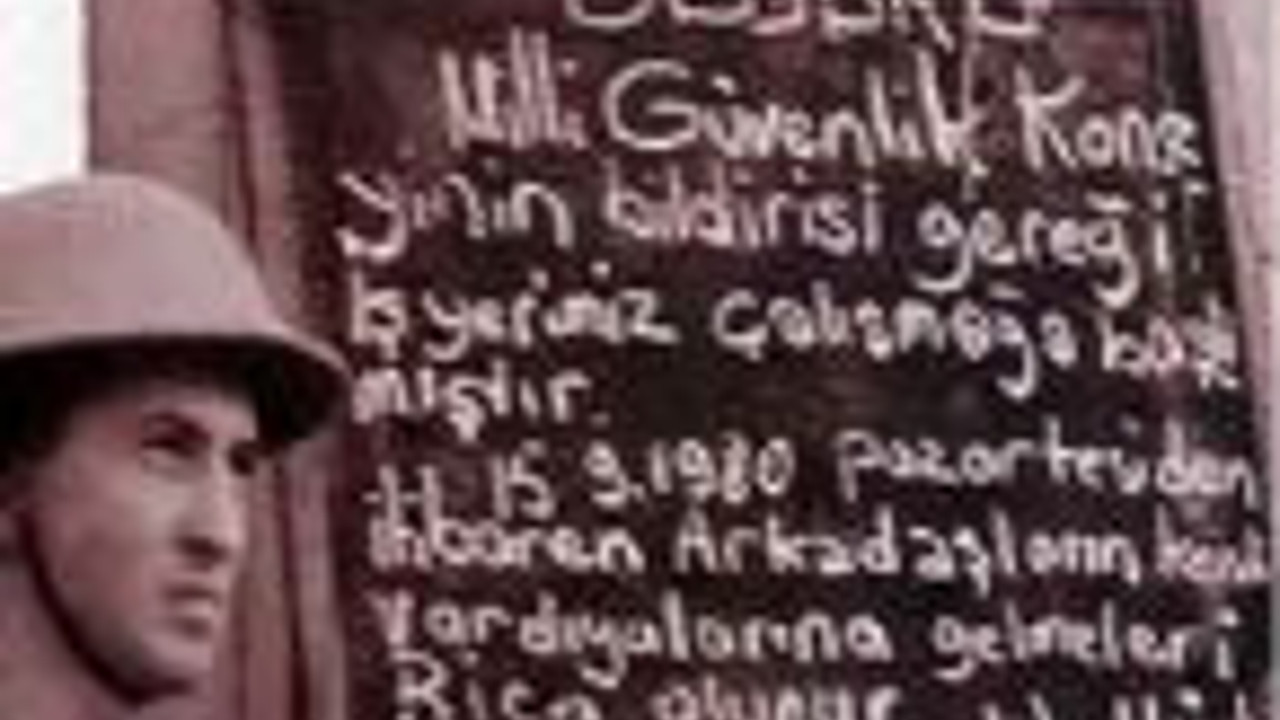 Milli Güvenlik Konse
yinin bildirisi gereği
İşyerimiz Çalışmağa başla
mıştır.
15.9.1980 pazartesiden
itibaren Arkadaşların kendi
Vardiyalarına gelmeleri
Rica olunur